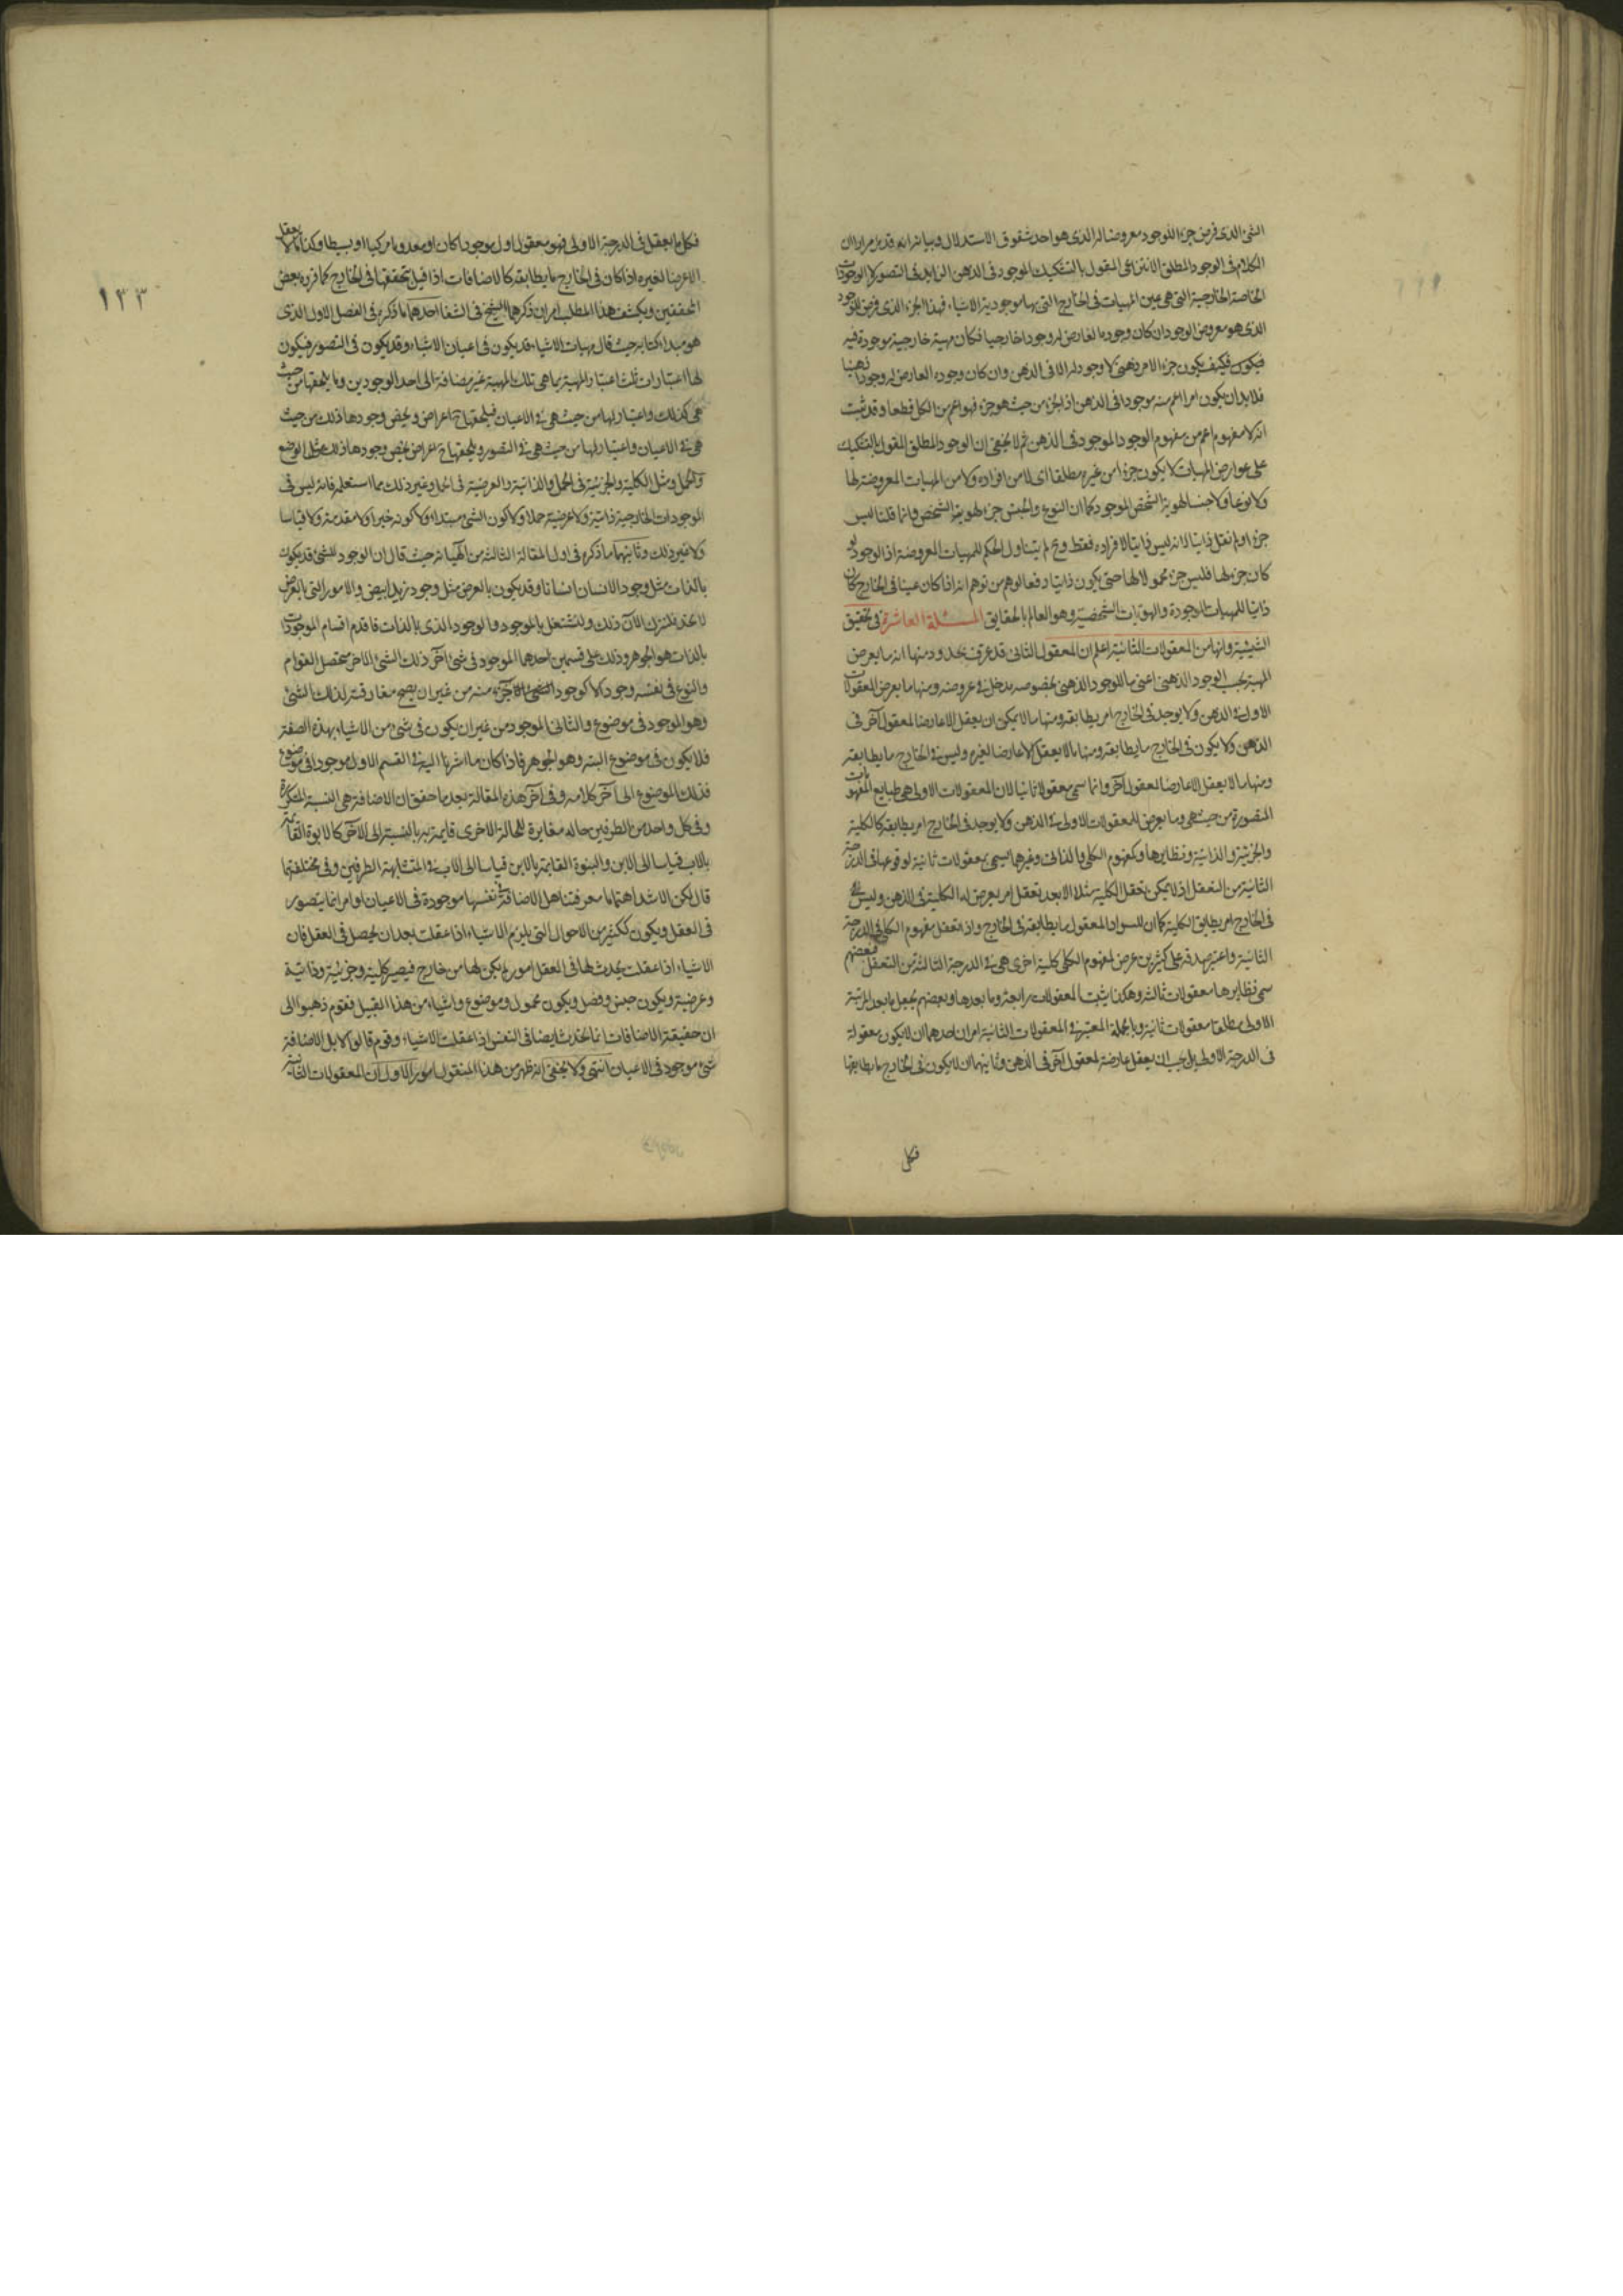 الشئ الذى فرض جزءا للوجود معروضا له الذى هو احد شقوق الاستدلال وبيانه انه قد مر مرارا ان
الكلام فى الوجود المطلق الانتزاعى المقول بالتشكيك الموجود فى الذهن الزايد فى التصور لا الوجودات
الخاصة الخارجية التى هى عين المهيات فى الخارج التى بها موجودية الاشياء فهذا الجزء الذى فرض للوجود
الذى هو معروض الوجود ان كان وجوده العارض له وجودا خارجيا فكان مهية خارجية موجودة فيه
فيكون فكيف يكون جزءا لامر ذهنى لا وجود له الا فى الذهن وان كان وجوده العارض له وجودا ذهنيا
فلا بد ان يكون امرا اعم منه موجودا فى الذهن اذ الجزء من حيث هو جزء فهو اعم من الكل قطعا وقد ثبت
انه لا مفهوم اعم من مفهوم الوجود الموجود فى الذهن ثم لا يخفى ان الوجود المطلق المقول بالتشكيك
على عوارض المهيات لا يكون جزءا من غيره مطلقا اى لا من افراده ولا من المهيات المعروضة لها
ولا نوعا ولا جنسا لهوية الشخص الموجود كما ان النوع والجنس جزء لهوية الشخص وانما قلنا ليس
جزءا ولم نقل ذاتيا لانه ليس ذاتيا لافراده فقط وح لم يتناول الحكم للمهيات المعروضة اذ الوجود لو
كان جزء لها فليس جزء محمولا لها حتى يكون ذاتيا دفعا لوهم من توهم انه اذا كان عينا فى الخارج كان
ذاتيا للمهيات الموجودة والهويات الشخصية وهو العالم بالحقايق المسئلة العاشرة فى تحقيق
الشيئية وانها من المعقولات الثانية اعلم ان المعقول الثانى قد عرف بحدود منها انه ما يعرض
المهية بحسب الوجود الذهنى اعنى ما للوجود الذهنى بخصوصه مدخل فى عروضه ومنها ما يعرض المعقولات
الاولى فى الذهن ولا يوجد فى الخارج امر يطابقه ومنها ما لا يمكن ان يعقل الا عارضا لمعقول آخر فى
الذهن ولا يكون فى الخارج ما يطابقه ومنها ما لا يعقل الا عارضا لغيره وليس فى الخارج ما يطابقه
ومنها ما لا يعقل الا عارضا لمعقول آخر وانما سمى معقولا ثانيا لان المعقولات الاولى هى طبايع المفهومات
المتصورة من حيث هى وما يعرض للمعقولات الاولى فى الذهن ولا يوجد فى الخارج امر يطابقه كالكلية
والجزئية والذاتية ونظايرها وكمفهوم الكلى والذاتى وغيرهما يسمى معقولات ثانية لوقوعها فى الدرجة
الثانية من التعقل اذ لا يمكن تعقل الكلية مثلا الا بعد تعقل امر يعرض له الكلية فى الذهن وليس
فى الخارج امر يطابق الكلية كما ان للسواد المعقول ما يطابقه فى الخارج واذا تعقل مفهوم الكلى فى الدرجة
الثانية واعتبر صدقه على كثيرين عرض لمفهوم الكلى كلية اخرى هى فى الدرجة الثالثة من التعقل فبعضهم
سمى نظايرها معقولات ثالثة وهكذا يثبت المعقولات رابعة وما بعدها وبعضهم يجعل ما بعد المرتبة
الاولى مطلقا معقولات ثانية وبالجملة المعتبر فى المعقولات الثانية امران احدهما ان لا يكون معقولة
فى الدرجة الاولى بل يجب ان يعقل عارضة لمعقول آخر فى الذهن وثانيهما ان لا يكون فى الخارج ما يطابقها
فكل
١٣٣
فكل ما يعقل فى الدرجة الاولى فهو معقول اول موجودا كان او معدوما مركبا او بسيطا وكذا ما لا يعقل
الا عارضا لغيره اذا كان فى الخارج ما يطابقه كالاضافات اذا قيل بتحققها فى الخارج كما قرره بعض
المحققين ويكشف هذا المطلب امران ذكرهما الشيخ فى الشفا احدهما ما ذكره فى الفصل الاول الذى
هو مبداء كتابه حيث قال مهيات الاشياء قد يكون فى اعيان الاشياء وقد يكون فى التصور فيكون
لها اعتبارات ثلث اعتبار المهية بما هى تلك المهية غير مضافة الى احد الوجودين وما يلحقها من حيث
هى كذلك واعتبار لها من حيث هى فى الاعيان فيلحقها ح اعراض ويخص وجودها ذلك من حيث
هى فى الاعيان واعتبار لها من حيث هى فى التصور ويلحقها ح اعراض يخص وجودها ذلك مثل الوضع
والحمل ومثل الكلية والجزئية فى الحمل والذاتية والعرضية فى الحمل وغير ذلك مما استعلمه فانه ليس فى
الموجودات الخارجية ذاتية ولا عرضية حملا ولا كون الشئ مبتداء ولا كونه خبرا ولا مقدمة ولا قياسا
ولا غير ذلك وثانيهما ما ذكره فى اول المقالة الثالثة من الهياته حيث قال ان الوجود للشئ قد يكون
بالذات مثل وجود الانسان انسانا وقد يكون بالعرض مثل وجود زيد ابيض والامور التى بالعرض
لا تحد فلنترك الآن ذلك ولنشتغل بالموجود والوجود الذى بالذات فاقدم اقسام الموجودات
بالذات هو الجوهر وذلك على قسمين احدهما الموجود فى شئ آخر ذلك الشئ الاخر متحصل القوام
والنوع فى نفسه وجودا لا كوجود جزء منه من غير ان يصح مفارقته لذلك الشئ
وهو الموجود فى موضوع والثانى الموجود من غير ان يكون فى شئ من الاشياء بهذه الصفة
فلا يكون فى موضوع البته وهو الجوهر فاذا كان ما اشرنا اليه فى القسم الاول موجودا فى موضوع
فذلك الموضوع الى آخر كلامه وفى آخر هذه المقالة بعد ما حقق ان الاضافة هى النسبة المتكررة
وفى كل واحد من الطرفين حاله مغايرة للحالة الاخرى قايمة به بالنسبة الى الآخر كالابوة القائمة
بالاب قياسا الى الابن والبنوة القايمة بالابن قياسا الى الاب فى المتشابهة الطرفين وفى مختلفتهما
قال لكن الاشد اهتماما معرفتنا هل الاضافة فى نفسها موجودة فى الاعيان او امر انما يتصور
فى العقل ويكون ككثير من الاحوال التى يلزم الاشياء اذا عقلت بعد ان يحصل فى العقل فان
الاشياء اذا عقلت يحدث لها فى العقل امور لم يكن لها من خارج فيصير كلية وجزئية وذاتية
وعرضية ويكون جنس وفصل ويكون محمول وموضوع واشياء من هذا القبيل فقوم ذهبوا الى
ان حقيقة الاضافات انما تحدث ايضا فى النفس اذا عقلت الاشياء وقوم قالوا لا بل الاضافة
شئ موجود فى الاعيان انتهى ولا يخفى انه ظهر من هذا المنقول امور الاول ان المعقولات الثانية